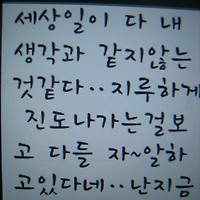 세상일이 다 내
생각과 같지않는
것같다..지루하게
진도나가는걸보
고 다들 자~알하
고있다네..난지금